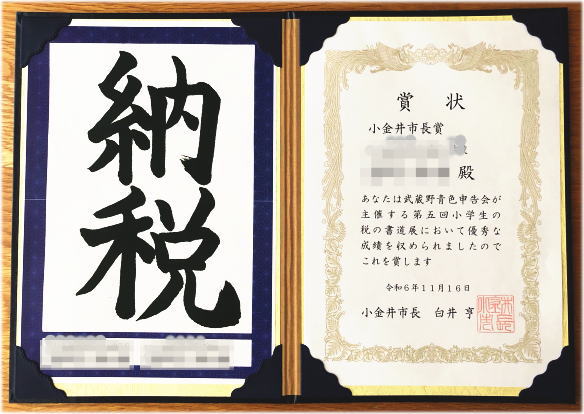 納税
賞状
小金井市長賞
殿
あなたは武蔵野青色申告会が
主催する第五回小学生の
税の書道展において優秀な
成績を収められましたので
これを賞します
令和6年11月16日
小金井市長 白井 亨